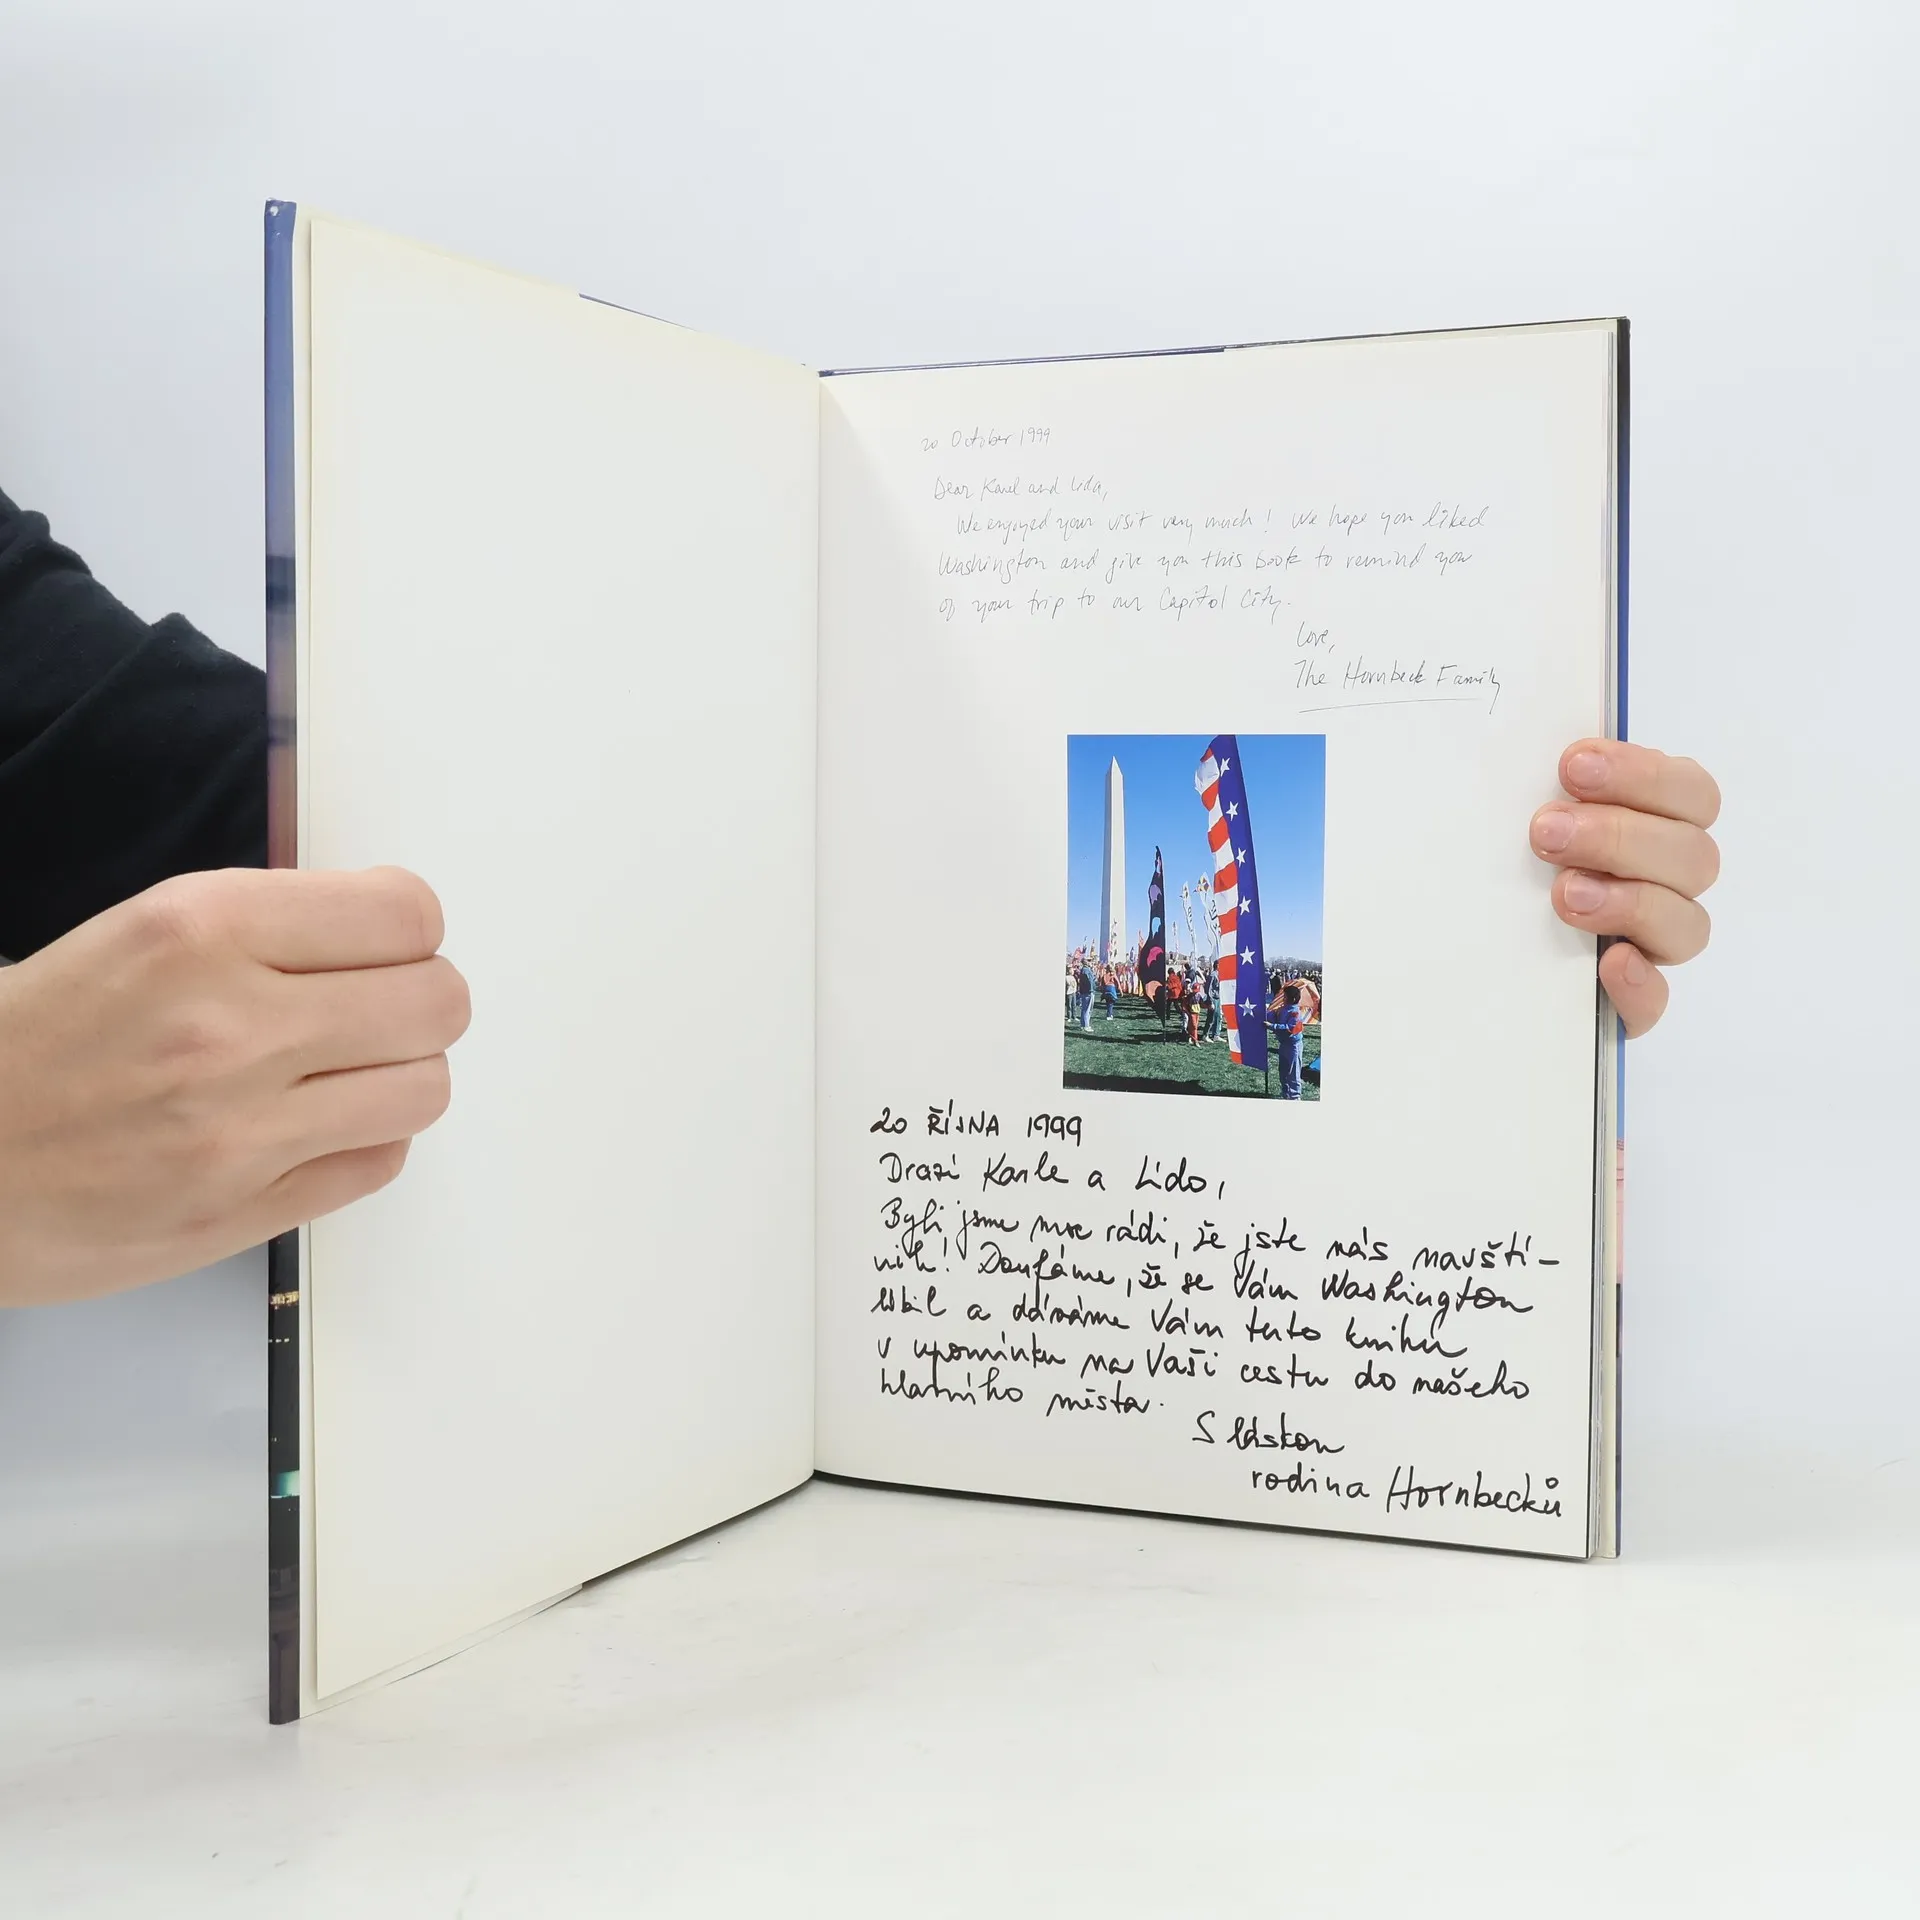 20 October 1999
Dear Karel and Lida,
We enjoyed your visit very much! We hope you liked
Washington and give you this book to remind you
of your trip to our Capitol City.
Love,
The Hornbeck Family
20 ŘÍJNA 1999
Drazí Karle a Lído,
Byli jsme moc rádi, že jste nás navští-
vili! Doufáme, že se Vám Washington
líbil a dáváme Vám tuto knihu
v upomínku na Vaši cestu do našeho
hlavního města.
S láskou
rodina Hornbecků